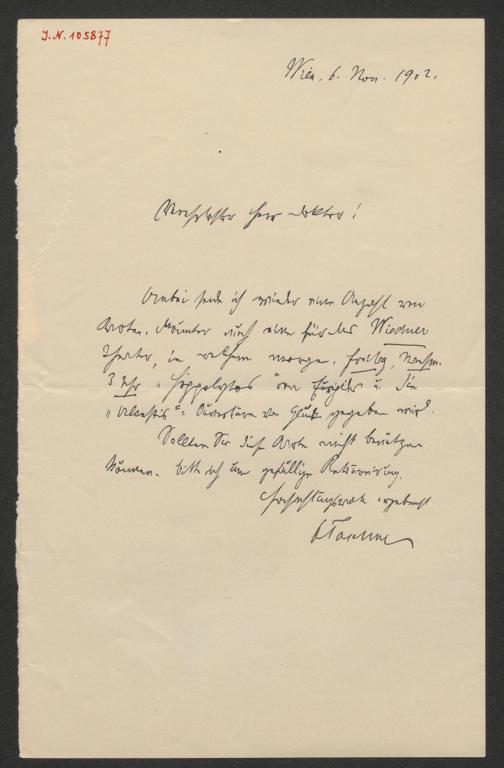 J.N. 105877
Wien, 6. Nov. 1902.
Verehrtester Herr Doktor!
Anbei sende ich wieder eine Anzahl von
Karten, darunter auch eine für das Wiedner
Theater, in welchem morgen, Freitag, Nachm.
3 Uhr "Hippolytos" von Euripides u. die
"Alcestis"-Ouverture von Gluck gegeben wird.
Sollten Sie diese Karte nicht benützen
können, bitte ich um gefällige Retournirung.
Hochachtungsvoll ergebenst